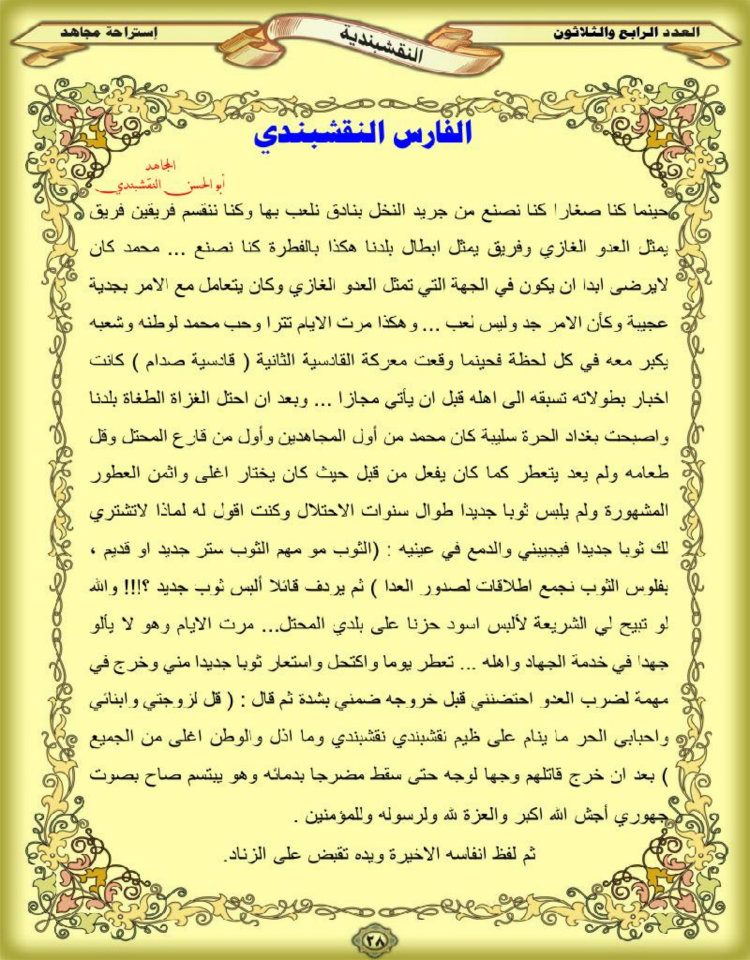 العدد الرابع والثلاثون
النقشبندية
إستراحة مجاهد
الفارس النقشبندي
المجاهد
أبو الحسن النقشبندي
حينما كنا صغارا كنا نصنع من جريد النخل بنادق نلعب بها وكنا ننقسم فريقين فريق
يمثل العدو الغازي وفريق يمثل ابطال بلدنا هكذا بالفطرة كنا نصنع ... محمد كان
لايرضى ابدا ان يكون في الجهة التي تمثل العدو الغازي وكان يتعامل مع الامر بجدية
عجيبة وكأن الامر جد وليس لعب ... وهكذا مرت الايام تترا وحب محمد لوطنه وشعبه
يكبر معه في كل لحظة فحينما وقعت معركة القادسية الثانية ( قادسية صدام ) كانت
اخبار بطولاته تسبقه الى اهله قبل ان يأتي مجازا ... وبعد ان احتل الغزاة الطغاة بلدنا
واصبحت بغداد الحرة سليبة كان محمد من أول المجاهدين وأول من قارع المحتل وقل
طعامه ولم يعد يتعطر كما كان يفعل من قبل حيث كان يختار اغلى واثمن العطور
المشهورة ولم يلبس ثوبا جديدا طوال سنوات الاحتلال وكنت اقول له لماذا لاتشتري
لك ثوبا جديدا فيجيبني والدمع في عينيه : (الثوب مو مهم الثوب ستر جديد او قديم ،
بفلوس الثوب نجمع اطلاقات لصدور العدا ) ثم يردف قائلا ألبس ثوب جديد ؟!!! والله
لو تبيح لي الشريعة لألبس اسود حزنا على بلدي المحتل... مرت الايام وهو لا يألو
جهدا في خدمة الجهاد واهله ... تعطر يوما واكتحل واستعار ثوبا جديدا مني وخرج في
مهمة لضرب العدو احتضنني قبل خروجه ضمني بشدة ثم قال : ( قل لزوجتي وابنائي
واحبابي الحر ما ينام على ظيم نقشبندي نقشبندي وما اذل والوطن اغلى من الجميع
) بعد ان خرج قاتلهم وجها لوجه حتى سقط مضرجا بدمائه وهو يبتسم صاح بصوت
جهوري أجش الله اكبر والعزة لله ولرسوله وللمؤمنين .
ثم لفظ انفاسه الاخيرة ويده تقبض على الزناد.
٣٨